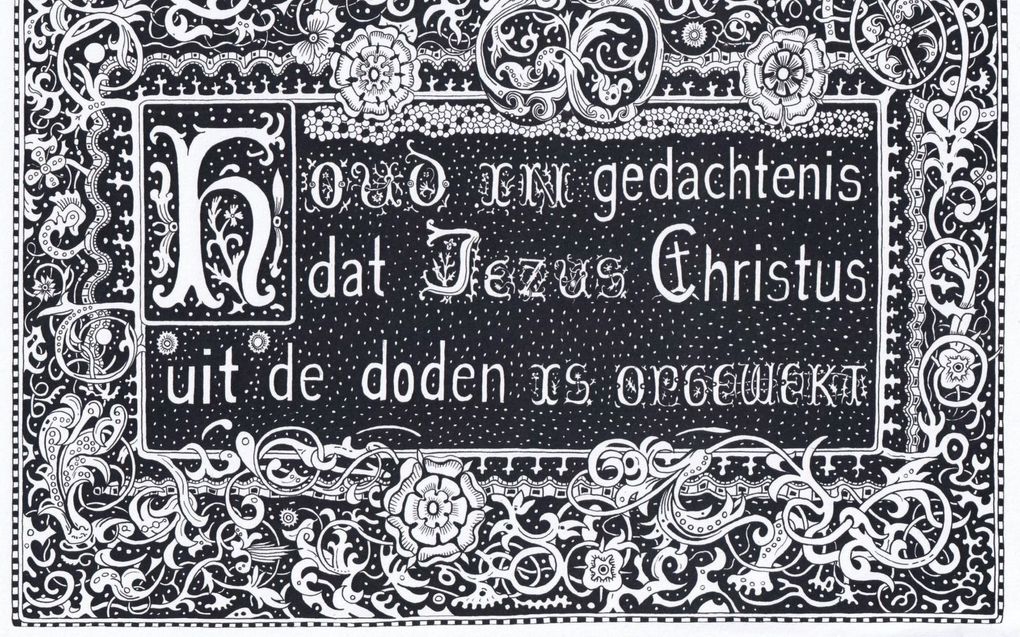 Houd in gedachtenis
dat Jezus Christus
uit de doden is opgewekt